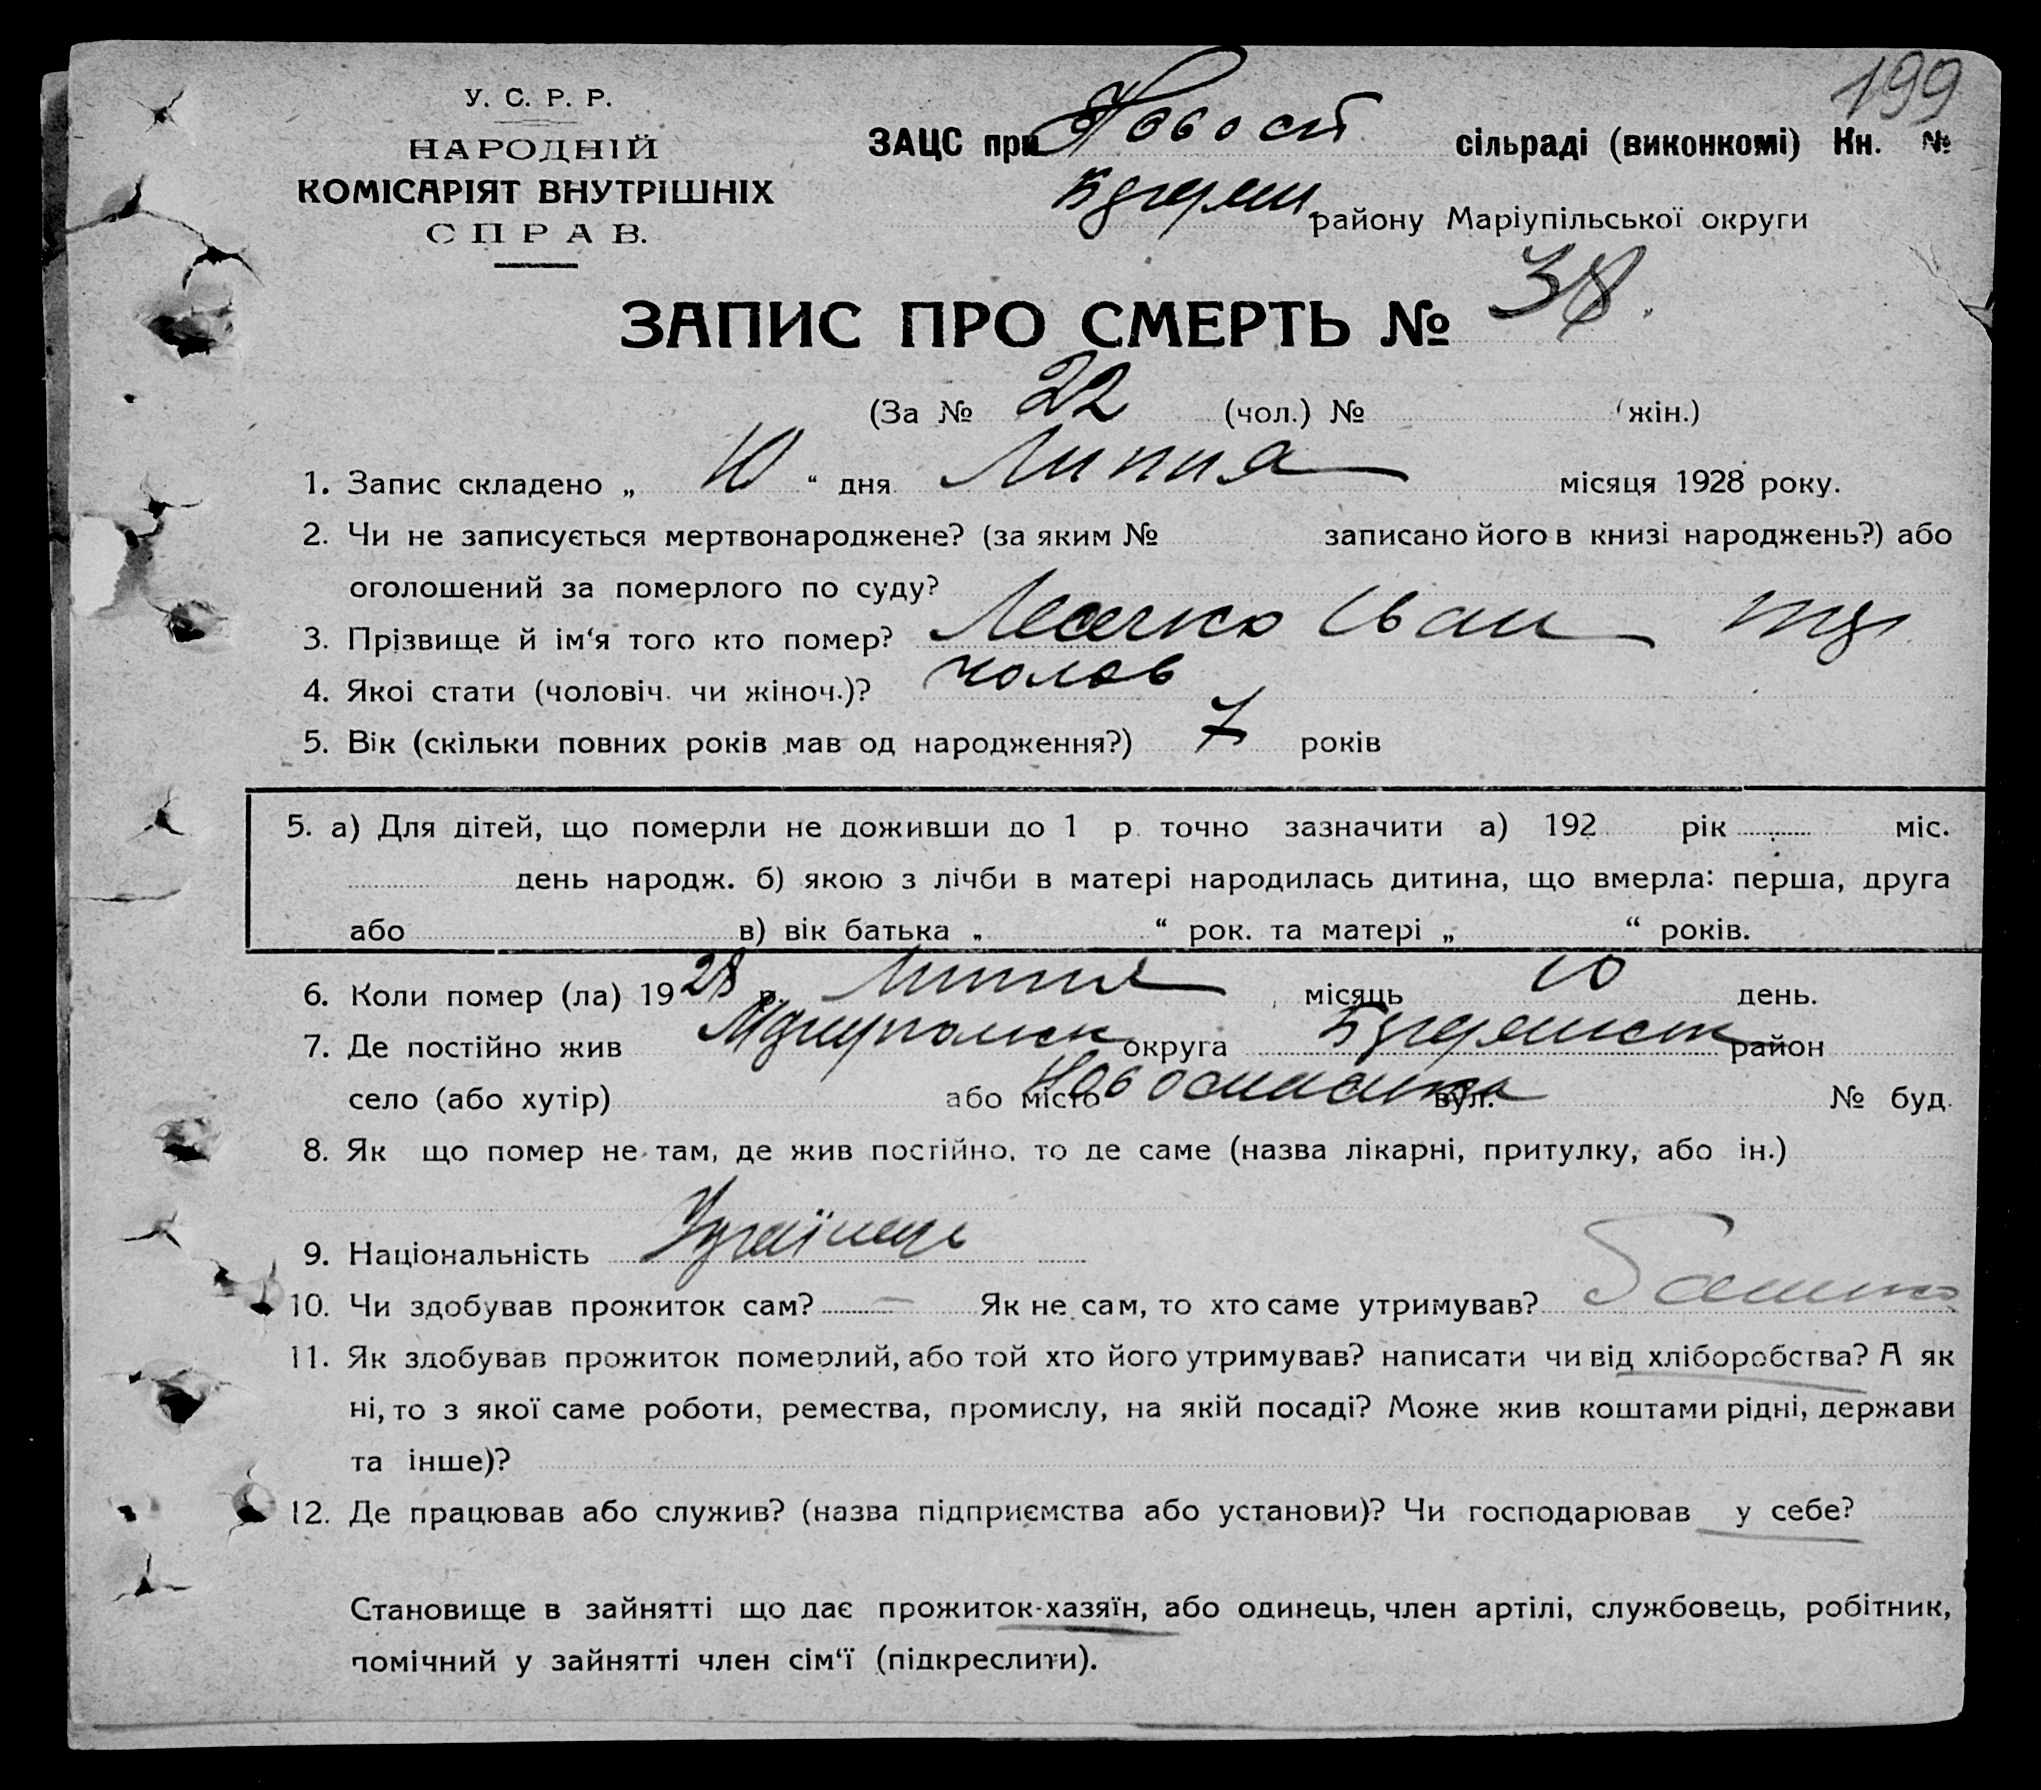 199
У. С. Р. Р.
НАРОДНІЙ
КОМІСАРІЯТ ВНУТРІШНІХ
СПРАВ.
ЗАЦС при сільраді (виконкомі) Кн. №
району Маріупільської округи
ЗАПИС ПРО СМЕРТЬ № 38.
(За № 22 (чол.) № (жін.)
1. Запис складено „ 10 “ дня Липня місяця 1928 року.
2. Чи не записується мертвонароджене? (за яким № записано його в книзі народжень?) або
оголошений за померлого по суду?
3. Прізвище й ім‘я того кто помер? Іван
4. Якої стати (чоловіч. чи жіноч.)? чолов
5. Вік (скільки повних років мав од народження?) 7 років
5. а) Для дітей, що померли не доживши до 1 р. точно зазначити а) 192 рік міс.
день народж. б) якою з лічби в матері народилась дитина, що вмерла: перша, друга
або в) вік батька „ “ рок. та матері „ “ років.
6. Коли помер (ла) 1928 р. Липня, місяць 10 день.
7. Де постійно жив округа район
село (або хутір) або місто вул. № буд.
8. Як що помер не там, де жив постійно, то де саме (назва лікарні, притулку, або ін.)
9. Національність Українець
10. Чи здобував прожиток сам? – Як не сам, то хто саме утримував? Батько
11. Як здобував прожиток померлий, або той хто його утримував? написати чи від хліборобства? А як
ні, то з якої саме роботи, ремества, промислу, на якій посаді? Може жив коштами рідні, держави
та інше)?
12. Де працював або служив? (назва підприємства або установи)? Чи господарював у себе?
Становище в зайнятті що дає прожиток-хазяїн, або одинець, член артілі, службовець, робітник,
помічний у зайнятті член сім‘ї (підкреслити).